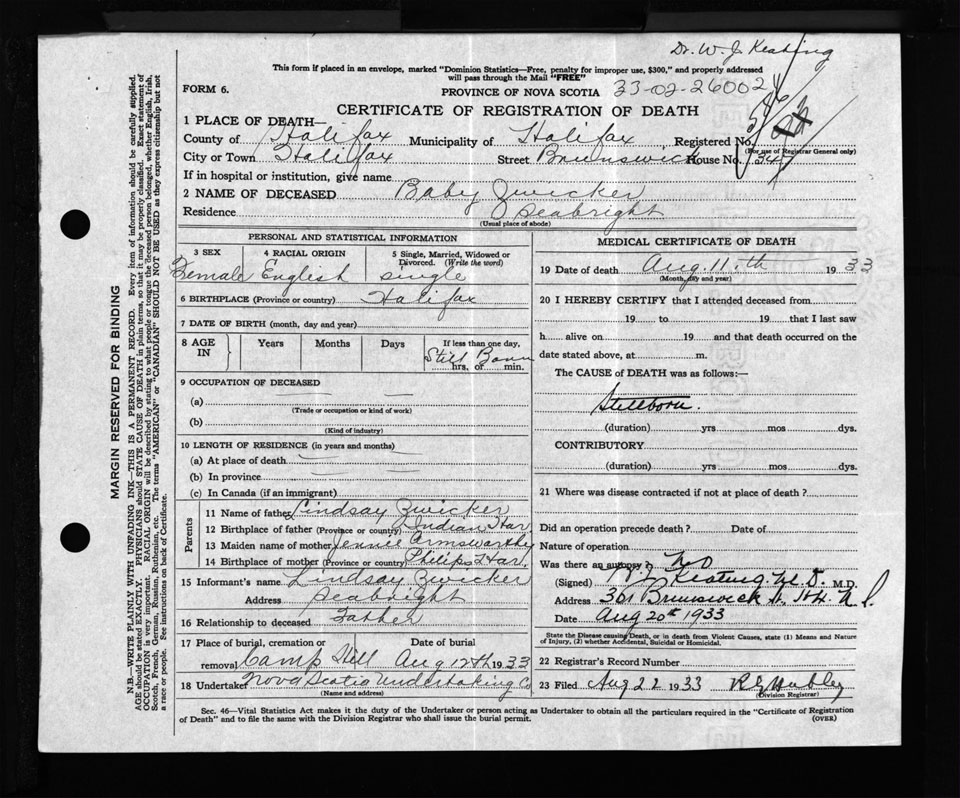 Dr. W. J. Keating
This form if placed in an envelope, marked "Dominion Statistics—Free, penalty for improper use, $300," and properly addressed
will pass through the Mail "FREE"
FORM 6.
PROVINCE OF NOVA SCOTIA 33-02-26002
CERTIFICATE OF REGISTRATION OF DEATH
1 PLACE OF DEATH—
County of Halifax Municipality of Halifax Registered No.
(For use of Registrar General only)
City or Town Halifax Street Brunswick House No. 347
If in hospital or institution, give name
2 NAME OF DECEASED Baby Zwicker
Residence Seabright
(Usual place of abode)
PERSONAL AND STATISTICAL INFORMATION
3 SEX 4 RACIAL ORIGIN 5 Single, Married, Widowed or
Divorced. (Write the word)
Female English single
6 BIRTHPLACE (Province or country) Halifax
7 DATE OF BIRTH (month, day and year)
8 AGE IN Years Months Days If less than one day,
Still Born
hrs. or min.
9 OCCUPATION OF DECEASED
(a)
(Trade or occupation or kind of work)
(b)
(Kind of industry)
10 LENGTH OF RESIDENCE (in years and months)
(a) At place of death
(b) In province
(c) In Canada (if an immigrant)
Parents
11 Name of father Lindsay Zwicker
12 Birthplace of father (Province or country) Indian Har.
13 Maiden name of mother Jennie Armsworthy
14 Birthplace of mother (Province or country) Philips Har.
15 Informant's name Lindsay Zwicker
Address Seabright
16 Relationship to deceased Father
17 Place of burial, cremation or Date of burial
removal Camp Hill Aug 12th 1933
18 Undertaker Nova Scotia Undertaking Co
(Name and address)
MEDICAL CERTIFICATE OF DEATH
19 Date of death Aug 11th 1933
(Month, day and year)
20 I HEREBY CERTIFY that I attended deceased from
19 to 19 that I last saw
h alive on 19 and that death occurred on the
date stated above, at m.
The CAUSE of DEATH was as follows:—
Stillborn.
(duration) yrs mos dys.
CONTRIBUTORY
(duration) yrs mos dys.
21 Where was disease contracted if not at place of death?
Did an operation precede death? Date of
Nature of operation
Was there an autopsy? No
(Signed) W. J. Keating M.D. M.D.
Address 301 Brunswick St. Hx. N.S.
Date Aug 20th 1933
State the Disease causing Death, or in death from Violent Causes, state (1) Means and Nature
of Injury, (2) whether Accidental, Suicidal or Homicidal.
22 Registrar's Record Number
23 Filed Aug 22 1933
(Division Registrar)
Sec. 46—Vital Statistics Act makes it the duty of the Undertaker or person acting as Undertaker to obtain all the particulars required in the "Certificate of Registration
of Death" and to file the same with the Division Registrar who shall issue the burial permit. (OVER)
MARGIN RESERVED FOR BINDING
N.B.—WRITE PLAINLY WITH UNFADING INK—THIS IS A PERMANENT RECORD. Every item of information should be carefully supplied.
AGE should be stated EXACTLY. PHYSICIANS should STATE CAUSE OF DEATH in plain terms, so that it may be properly classified. Exact statement of
OCCUPATION is very important. RACIAL ORIGIN will be described by stating to what people or tongue the deceased person belonged, whether English, Irish,
Scotch, French, German, Russian, Ruthenian, etc. The terms "AMERICAN" or "CANADIAN" SHOULD NOT BE USED as they express citizenship but not
a race or people. See instructions on back of Certificate.